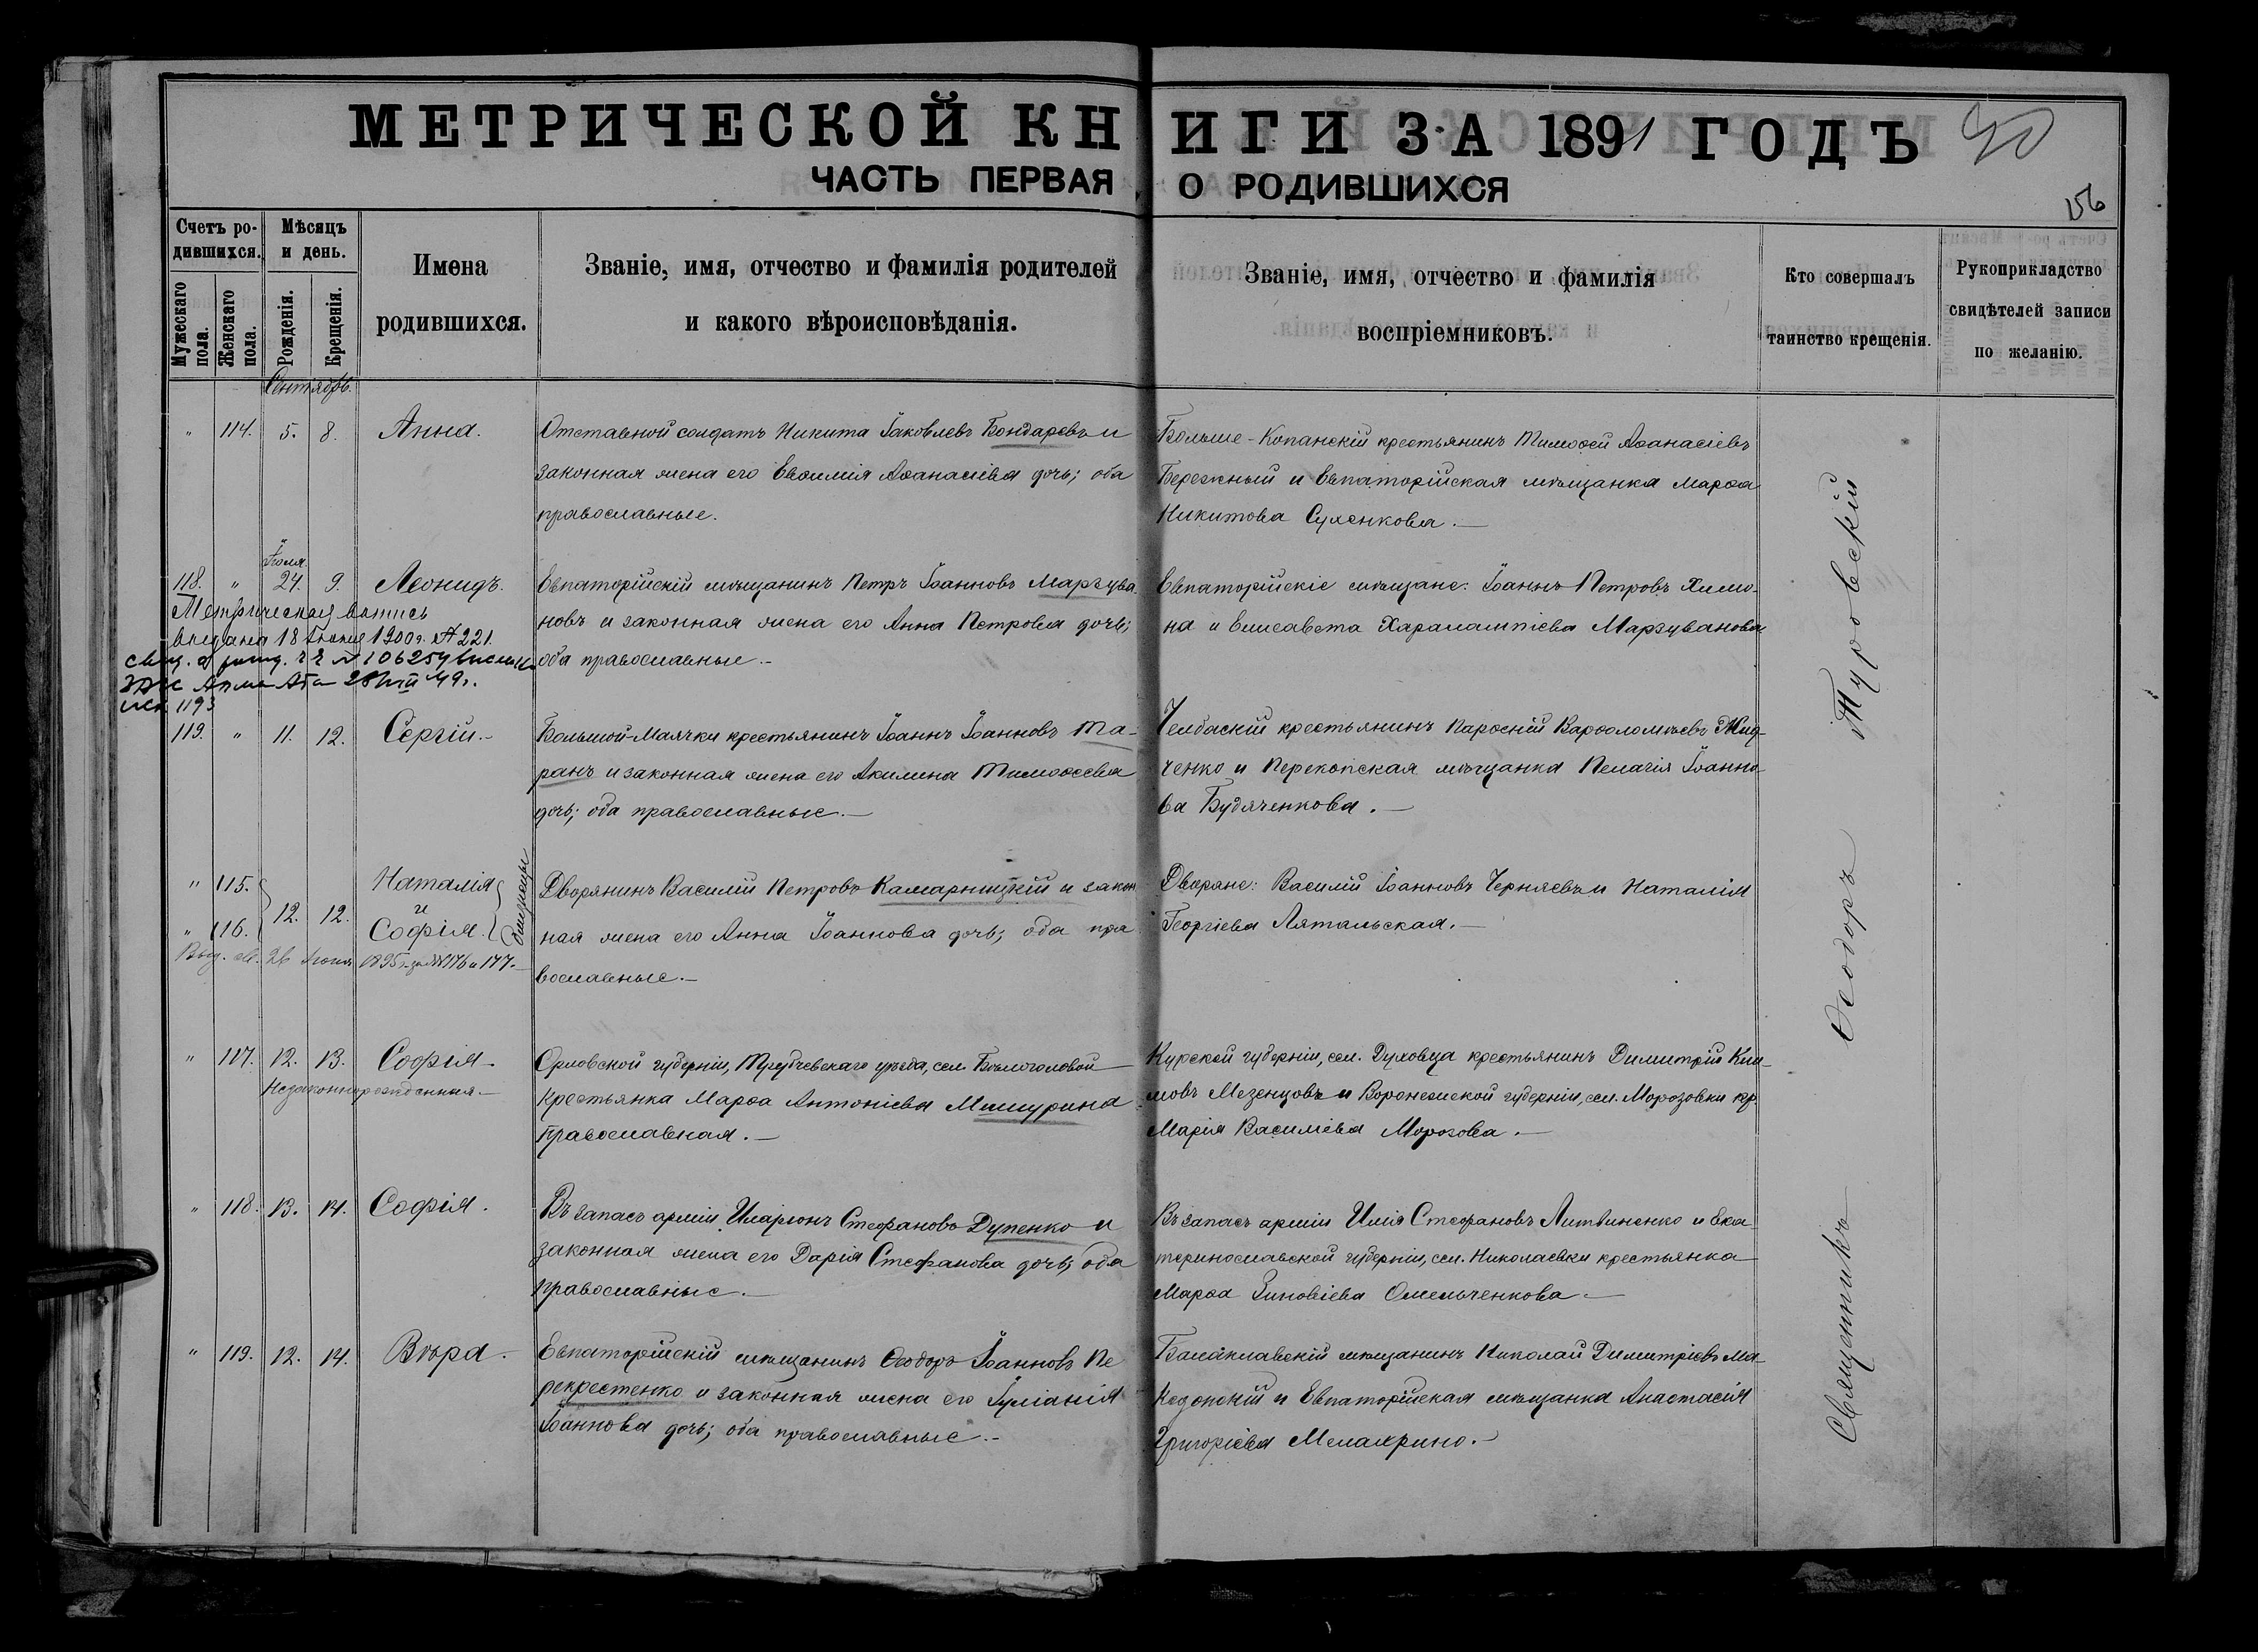 МЕТРИЧЕСКОЙ КНИГИ ЗА 1891 ГОДЪ
ЧАСТЬ ПЕРВАЯ О РОДИВШИХСЯ
156
Счетъ родившихся.
Мужескаго пола.
Женскаго пола.
Мѣсяцъ и день.
Рожденія.
Крещенія.
Имена
родившихся.
Званіе, имя, отчество и фамилія родителей
и какого вѣроисповѣданія.
Званіе, имя, отчество и фамилія
воспріемниковъ.
Кто совершалъ
таинство крещенія.
Рукоприкладство
свидѣтелей записи
по желанію.
Сентябрь.
" 114. 5. 8. Анна.
Отставной солдатъ Никита Іаковлевъ Бондаревъ и
законная жена его Евѳимія Аѳанасіева дочь; оба
православные.
Больше-Копанскій крестьянинъ Тимоѳей Аѳанасіевъ
Бережный и Евпаторійская мѣщанка Марѳа
Никитова Сухенкова.
Іюля
118. " 24. 9. Леонидъ.
Метрическая выпись
выдана 18 Іюня 1900 г. № 221.
28/VIII 49 г.
1193
Евпаторійскій мѣщанинъ Петръ Іоанновъ Маргува
новъ и законная жена его Анна Петрова дочь;
оба православные.
Евпаторійскіе мѣщане: Іоаннъ Петровъ Химо-
на и Елисавета Харалампіева Маргуванова
119. " 11. 12. Сергій.
Большой-Маячки крестьянинъ Іоаннъ Іоанновъ Та-
ранъ и законная жена его Акилина Тимоѳеева
дочь; оба православные.
Челбаскій крестьянинъ Парѳеній Варѳоломѣевъ Жид-
ченко и Перекопская мѣщанка Пелагія Іоанно-
ва Будяченкова.
" 115. Наталія
12. 12. и
" 116. Софія.
близнецы
Выд. св. 26 Іюня 1895 г. за №№ 176 и 177.
Дворянинъ Василій Петровъ Камарницкій и закон
ная жена его Анна Іоаннова дочь; оба пра
вославные.
Дворяне: Василій Іоанновъ Черняевъ и Наталія
Георгіева Лятальская.
" 117. 12. 13. Софія.
Незаконнорожденная.
Орловской губерніи, Трубчевскаго уѣзда, сел. Бѣлоголовой
крестьянка Марѳа Антоніева Мишурина
православная.
Курской губерніи, сел. Духовца крестьянинъ Димитрій Кли-
мовъ Мезенцовъ и Воронежской губерніи, сел. Морозовки кр.
Марія Василіева Морозова.
" 118. 13. 14. Софія.
Въ запасъ арміи Иларіонъ Стефановъ Дупенко и
законная жена его Дарія Стефанова дочь; оба
православные.
Въ запасъ арміи Илія Стефановъ Литвиненко и Ека-
теринославской губерніи, сел. Николаевки крестьянка
Марѳа Зиновіева Омельченкова.
" 119. 12. 14. Вѣра.
Евпаторійскій мѣщанинъ Ѳеодоръ Іоанновъ Пе
рекрестенко и законная жена его Іуліанія
Іоаннова дочь; оба православные.
Балаклавскій мѣщанинъ Николай Димитріевъ Ма-
кедонскій и Евпаторійская мѣщанка Анастасія
Григоріева Мелахрино.
Священникъ Ѳеодоръ Туровскій